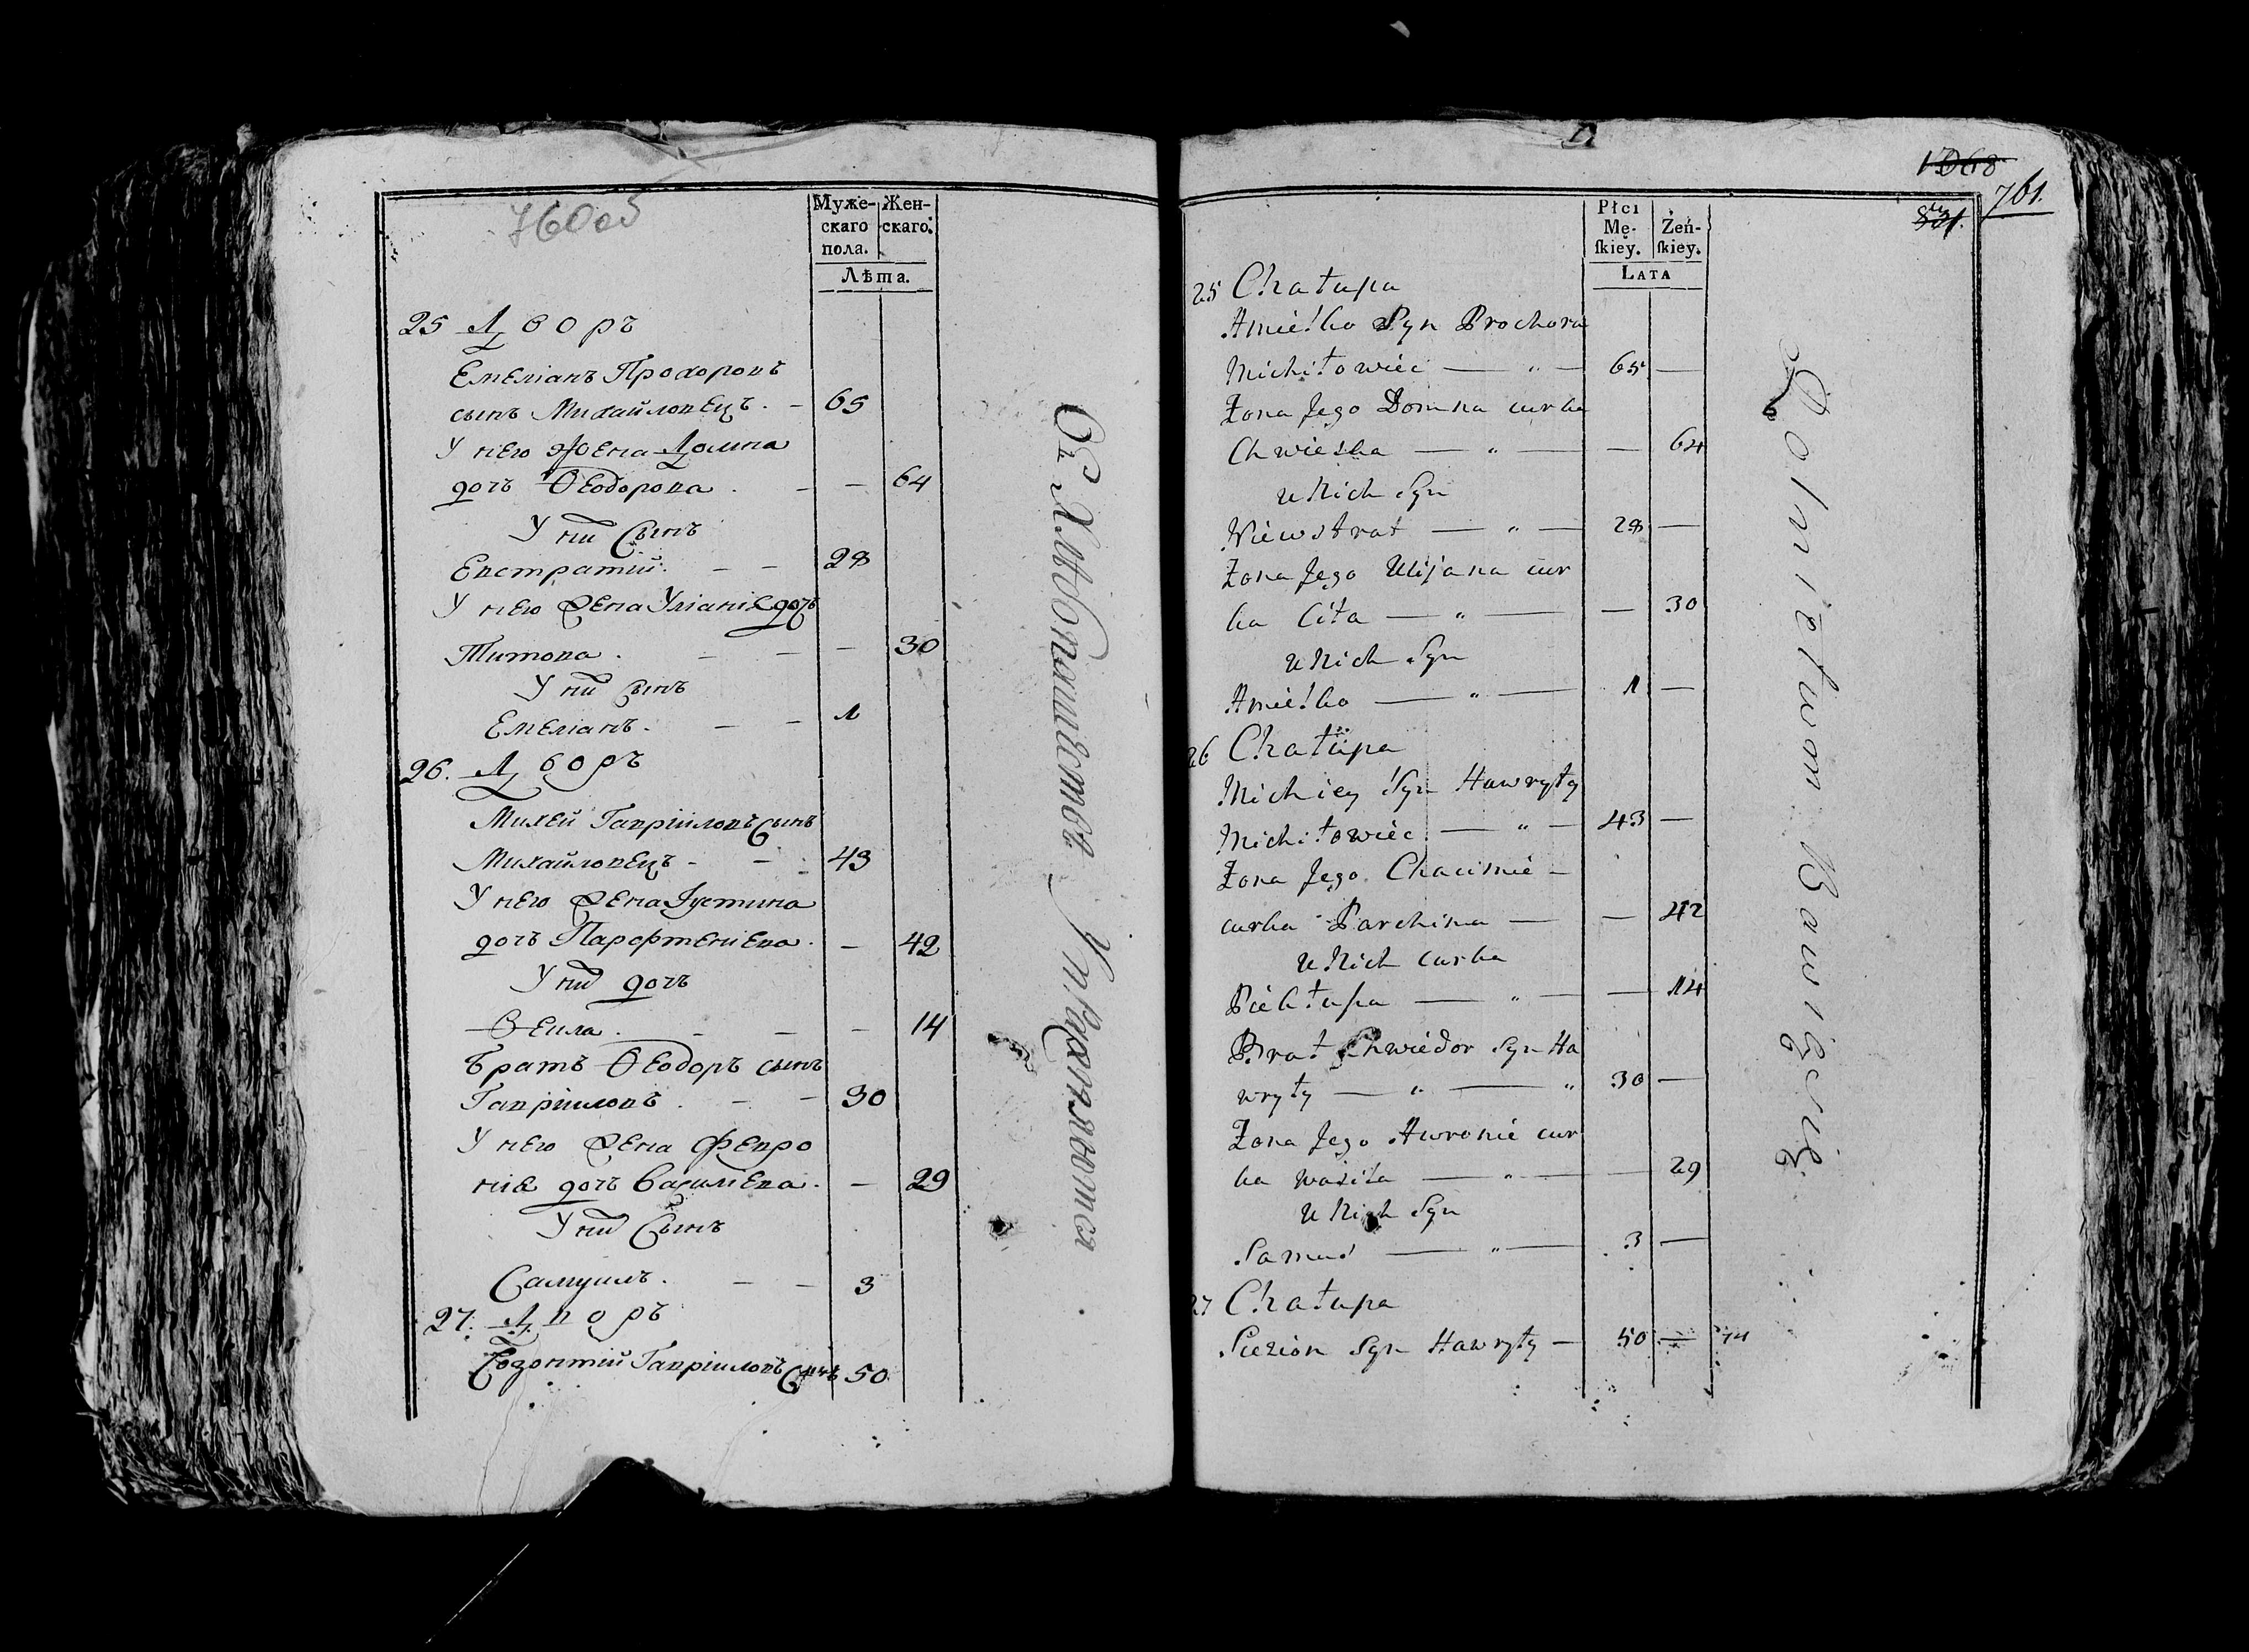 760об
Муже-
скаго
пола.
Жен-
скаго.
Лѣта.
25 Дворъ
Емеліанъ Прохоровъ
сынъ Михайловецъ. – 65
У него жена Домна
дочь Ѳеодорова. – – 64
У ни Сынъ
Евстратий. – – 28
У него жена Уліаніа дочь
Титова. – – – 30
У ни Сынъ
Емеліанъ. – – 1
26. Дворъ
Михей Гавріиловъ Сынъ
Михайловецъ - – 43
У него жена Іустина
дочь Парфтениева. – 42
У ни дочь
Ѳекла. – – – 14
братъ Ѳеодоръ сынъ
Гавріиловъ. – – 30
У него жена Февро
ніа дочь Васильева. – 29
У ни Сынъ
Самуилъ. – – 3
27. Дворъ
Созонтий Гавріиловъ Сынъ 50
1068
761.
Płci
Mę-
ſkiey.
Żeń-
ſkiey.
Lata
25 Chałupa
Amielko Syn Prochora
Michiłowiec — „ — 65 —
Żona Jego Domna curka
Chwiedka — „ — — 64
u Nich Syn
Niewstrat — „ — 28 —
Żona Jego Ulijana cur
ka Cita — „ — — 30
u Nich Syn
Amielko — „ — 1 —
26 Chałupa
Michiey Syn Hawryły
Michiłowiec — „ — 43 —
Żona Jego Chacimie –
curka Parchima — — 42
u Nich curka
Piekłupa — „ — — 14
Brat Chwiedor Syn Ha
wryły — „ — „ 30 —
Żona Jego Awronie cur
ka Waśila — „ — — 29
u Nich Syn
Samuś — „ — 3 —
27 Chałupa
Suzion Syn Hawryły — 50 —